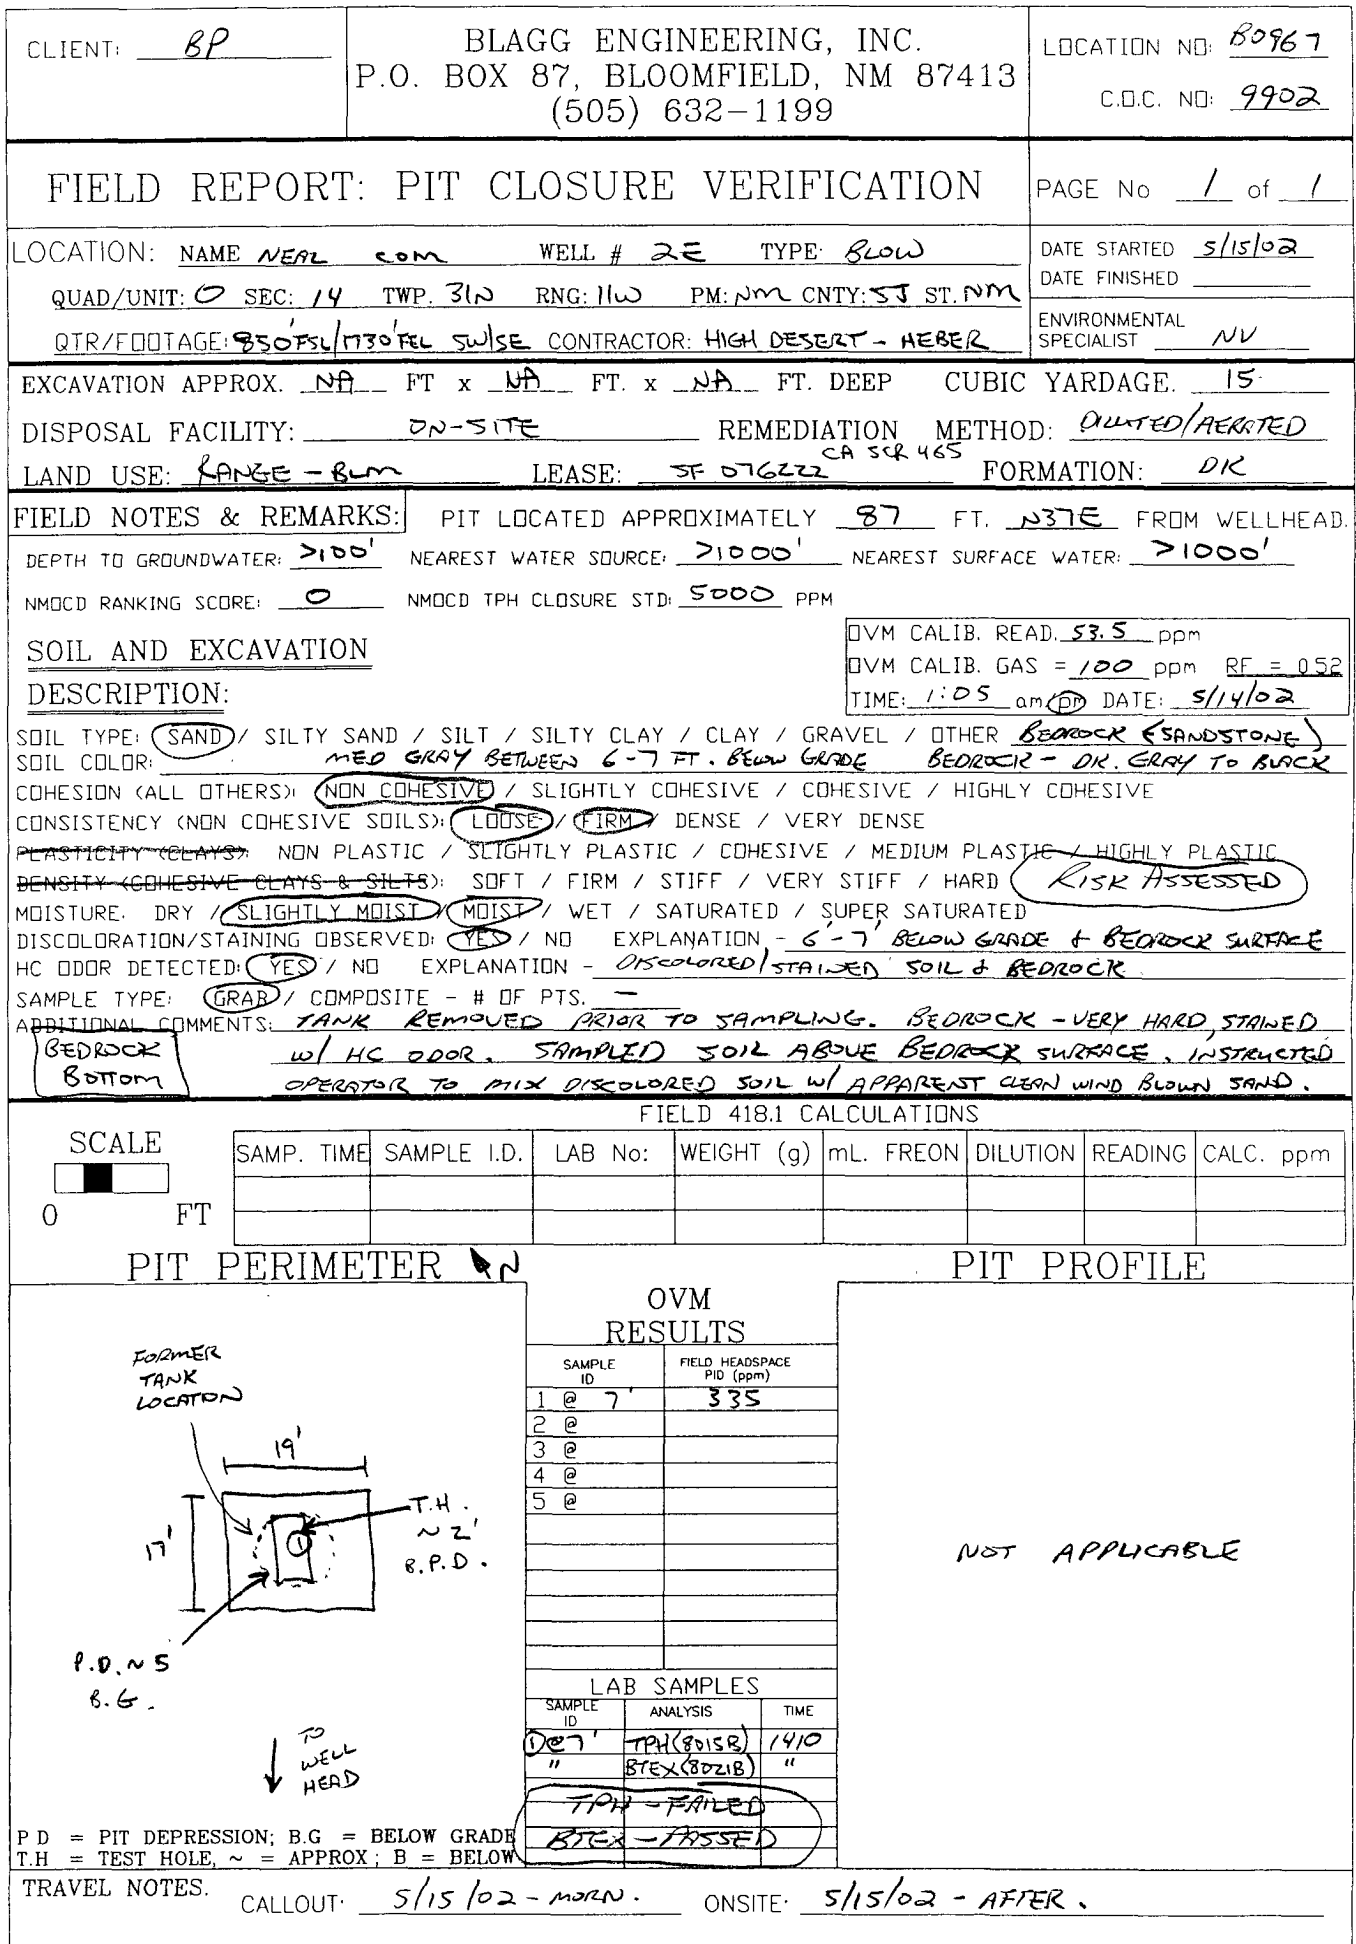 CLIENT: BP
BLAGG ENGINEERING, INC.
P.O. BOX 87, BLOOMFIELD, NM 87413
(505) 632-1199
LOCATION NO: B0967
C.O.C. NO: 9902
FIELD REPORT: PIT CLOSURE VERIFICATION
PAGE No 1 of 1
LOCATION: NAME NEAL COM WELL # 2E TYPE: BLOW
QUAD/UNIT: O SEC: 14 TWP. 31N RNG: 11W PM: NM CNTY: SJ ST. NM
QTR/FOOTAGE: 850'FSL/1730'FEL SW/SE CONTRACTOR: HIGH DESERT - HEBER
DATE STARTED 5/15/02
DATE FINISHED
ENVIRONMENTAL
SPECIALIST NV
EXCAVATION APPROX. NA FT x NA FT. x NA FT. DEEP CUBIC YARDAGE. 15
DISPOSAL FACILITY: ON-SITE REMEDIATION METHOD: DILUTED/AERATED
CA SCR 465
LAND USE: RANGE - BLM LEASE: SF 076222 FORMATION: DK
FIELD NOTES & REMARKS: PIT LOCATED APPROXIMATELY 87 FT. N37E FROM WELLHEAD.
DEPTH TO GROUNDWATER: >100' NEAREST WATER SOURCE: >1000' NEAREST SURFACE WATER: >1000'
NMOCD RANKING SCORE: 0 NMOCD TPH CLOSURE STD: 5000 PPM
SOIL AND EXCAVATION
DESCRIPTION:
OVM CALIB. READ. 53.5 ppm
OVM CALIB. GAS = 100 ppm RF = 0.52
TIME: 1:05 am/pm DATE: 5/14/02
SOIL TYPE: SAND / SILTY SAND / SILT / SILTY CLAY / CLAY / GRAVEL / OTHER BEDROCK (SANDSTONE)
SOIL COLOR: MED GRAY BETWEEN 6-7 FT. BELOW GRADE BEDROCK - DK. GRAY TO BLACK
COHESION (ALL OTHERS): NON COHESIVE / SLIGHTLY COHESIVE / COHESIVE / HIGHLY COHESIVE
CONSISTENCY (NON COHESIVE SOILS): LOOSE / FIRM / DENSE / VERY DENSE
PLASTICITY (CLAYS): NON PLASTIC / SLIGHTLY PLASTIC / COHESIVE / MEDIUM PLASTIC / HIGHLY PLASTIC
DENSITY (COHESIVE CLAYS & SILTS): SOFT / FIRM / STIFF / VERY STIFF / HARD RISK ASSESSED
MOISTURE. DRY / SLIGHTLY MOIST / MOIST / WET / SATURATED / SUPER SATURATED
DISCOLORATION/STAINING OBSERVED: YES / NO EXPLANATION - 6'-7' BELOW GRADE & BEDROCK SURFACE
HC ODOR DETECTED: YES / NO EXPLANATION - DISCOLORED/STAINED SOIL & BEDROCK
SAMPLE TYPE: GRAB / COMPOSITE - # OF PTS. -
ADDITIONAL COMMENTS: TANK REMOVED PRIOR TO SAMPLING. BEDROCK - VERY HARD, STAINED
BEDROCK
BOTTOM
W/ HC ODOR. SAMPLED SOIL ABOVE BEDROCK SURFACE. INSTRUCTED
OPERATOR TO MIX DISCOLORED SOIL W/ APPARENT CLEAN WIND BLOWN SAND.
FIELD 418.1 CALCULATIONS
SCALE
0 FT
SAMP. TIME SAMPLE I.D. LAB No: WEIGHT (g) mL. FREON DILUTION READING CALC. ppm
PIT PERIMETER N
PIT PROFILE
FORMER
TANK
LOCATION
19'
17'
T.H.
~ 2'
B.P.D.
P.D. ~ 5
B.G.
TO
WELL
HEAD
P D = PIT DEPRESSION; B.G = BELOW GRADE
T.H = TEST HOLE, ~ = APPROX; B = BELOW
OVM
RESULTS
SAMPLE ID FIELD HEADSPACE PID (ppm)
1 @ 7' 335
2 @
3 @
4 @
5 @
LAB SAMPLES
SAMPLE ID ANALYSIS TIME
1@7' TPH(8015B) 1410
" BTEX(8021B) "
TPH - FAILED
BTEX - PASSED
NOT APPLICABLE
TRAVEL NOTES. CALLOUT: 5/15/02 - MORN. ONSITE: 5/15/02 - AFTER.